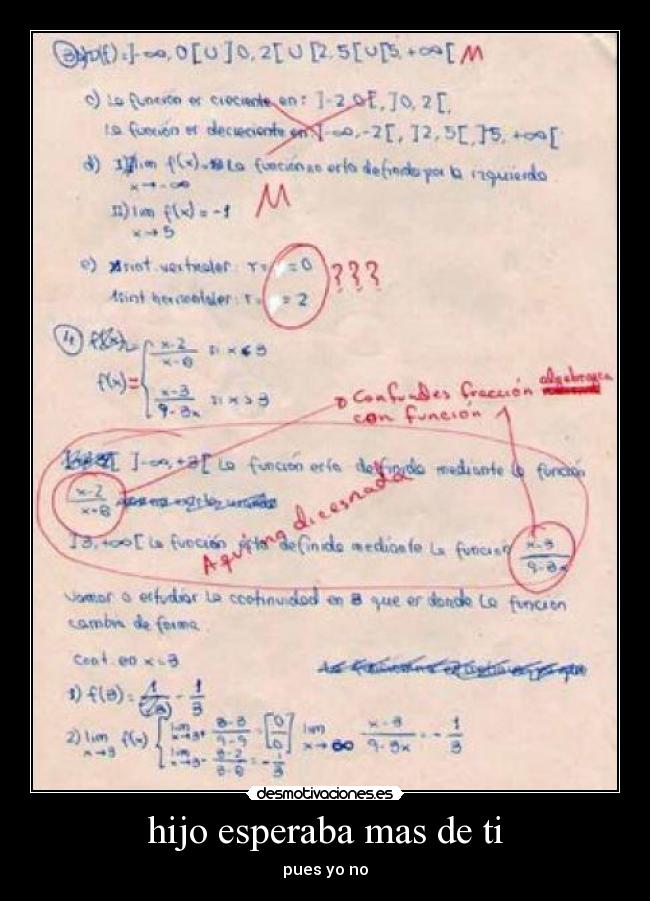 3 b) D(f)=]-∞,0[ U ]0,2[ U [2,5[ U [5,+∞[ M
c) La función es creciente en: ]-2,0[, ]0,2[,
la función es decreciente en ]-∞,-2[, ]2,5[, ]5,+∞[
d) I) lim f(x) La función no está definida por la izquierda
x→-∞
II) lim f(x)=-1 M
x→5
e) Asint. verticales: r= =0
Asint horizontales: r= =2 ???
4 f(x)= x-2 si x<3
f(x)= x-3 si x>3
9-3x
Confundes fracción algebraica
con función
]-∞,+3[ La función está definida mediante la función
x-2
Aquí no dices nada
]3,+∞[ La función está definida mediante la función x-3
9-3x
Vamos a estudiar la continuidad en 3 que es donde la función
cambia de forma.
Cont. en x=3
1) f(3)= - 1
3
2) lim f(x) lim 3-3 = [0 lim x-3 = - 1
x→3 x→3+ 9-9 0] x→∞ 9-3x 3
lim 3-2 = - 1
x→3- 3
desmotivaciones.es
hijo esperaba mas de ti
pues yo no